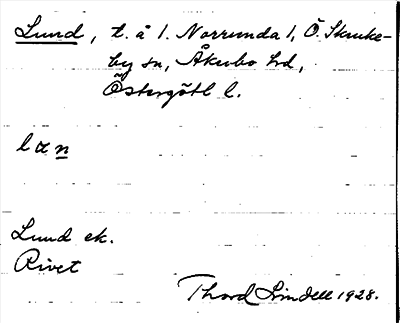 Lund, t. å 1. Norrunda 1, Ö. Skruke-
by sn, Åkerbo hd,
Östergötl l.
l a n
Lund ek.
Rivet
Thord Lindell 1928.